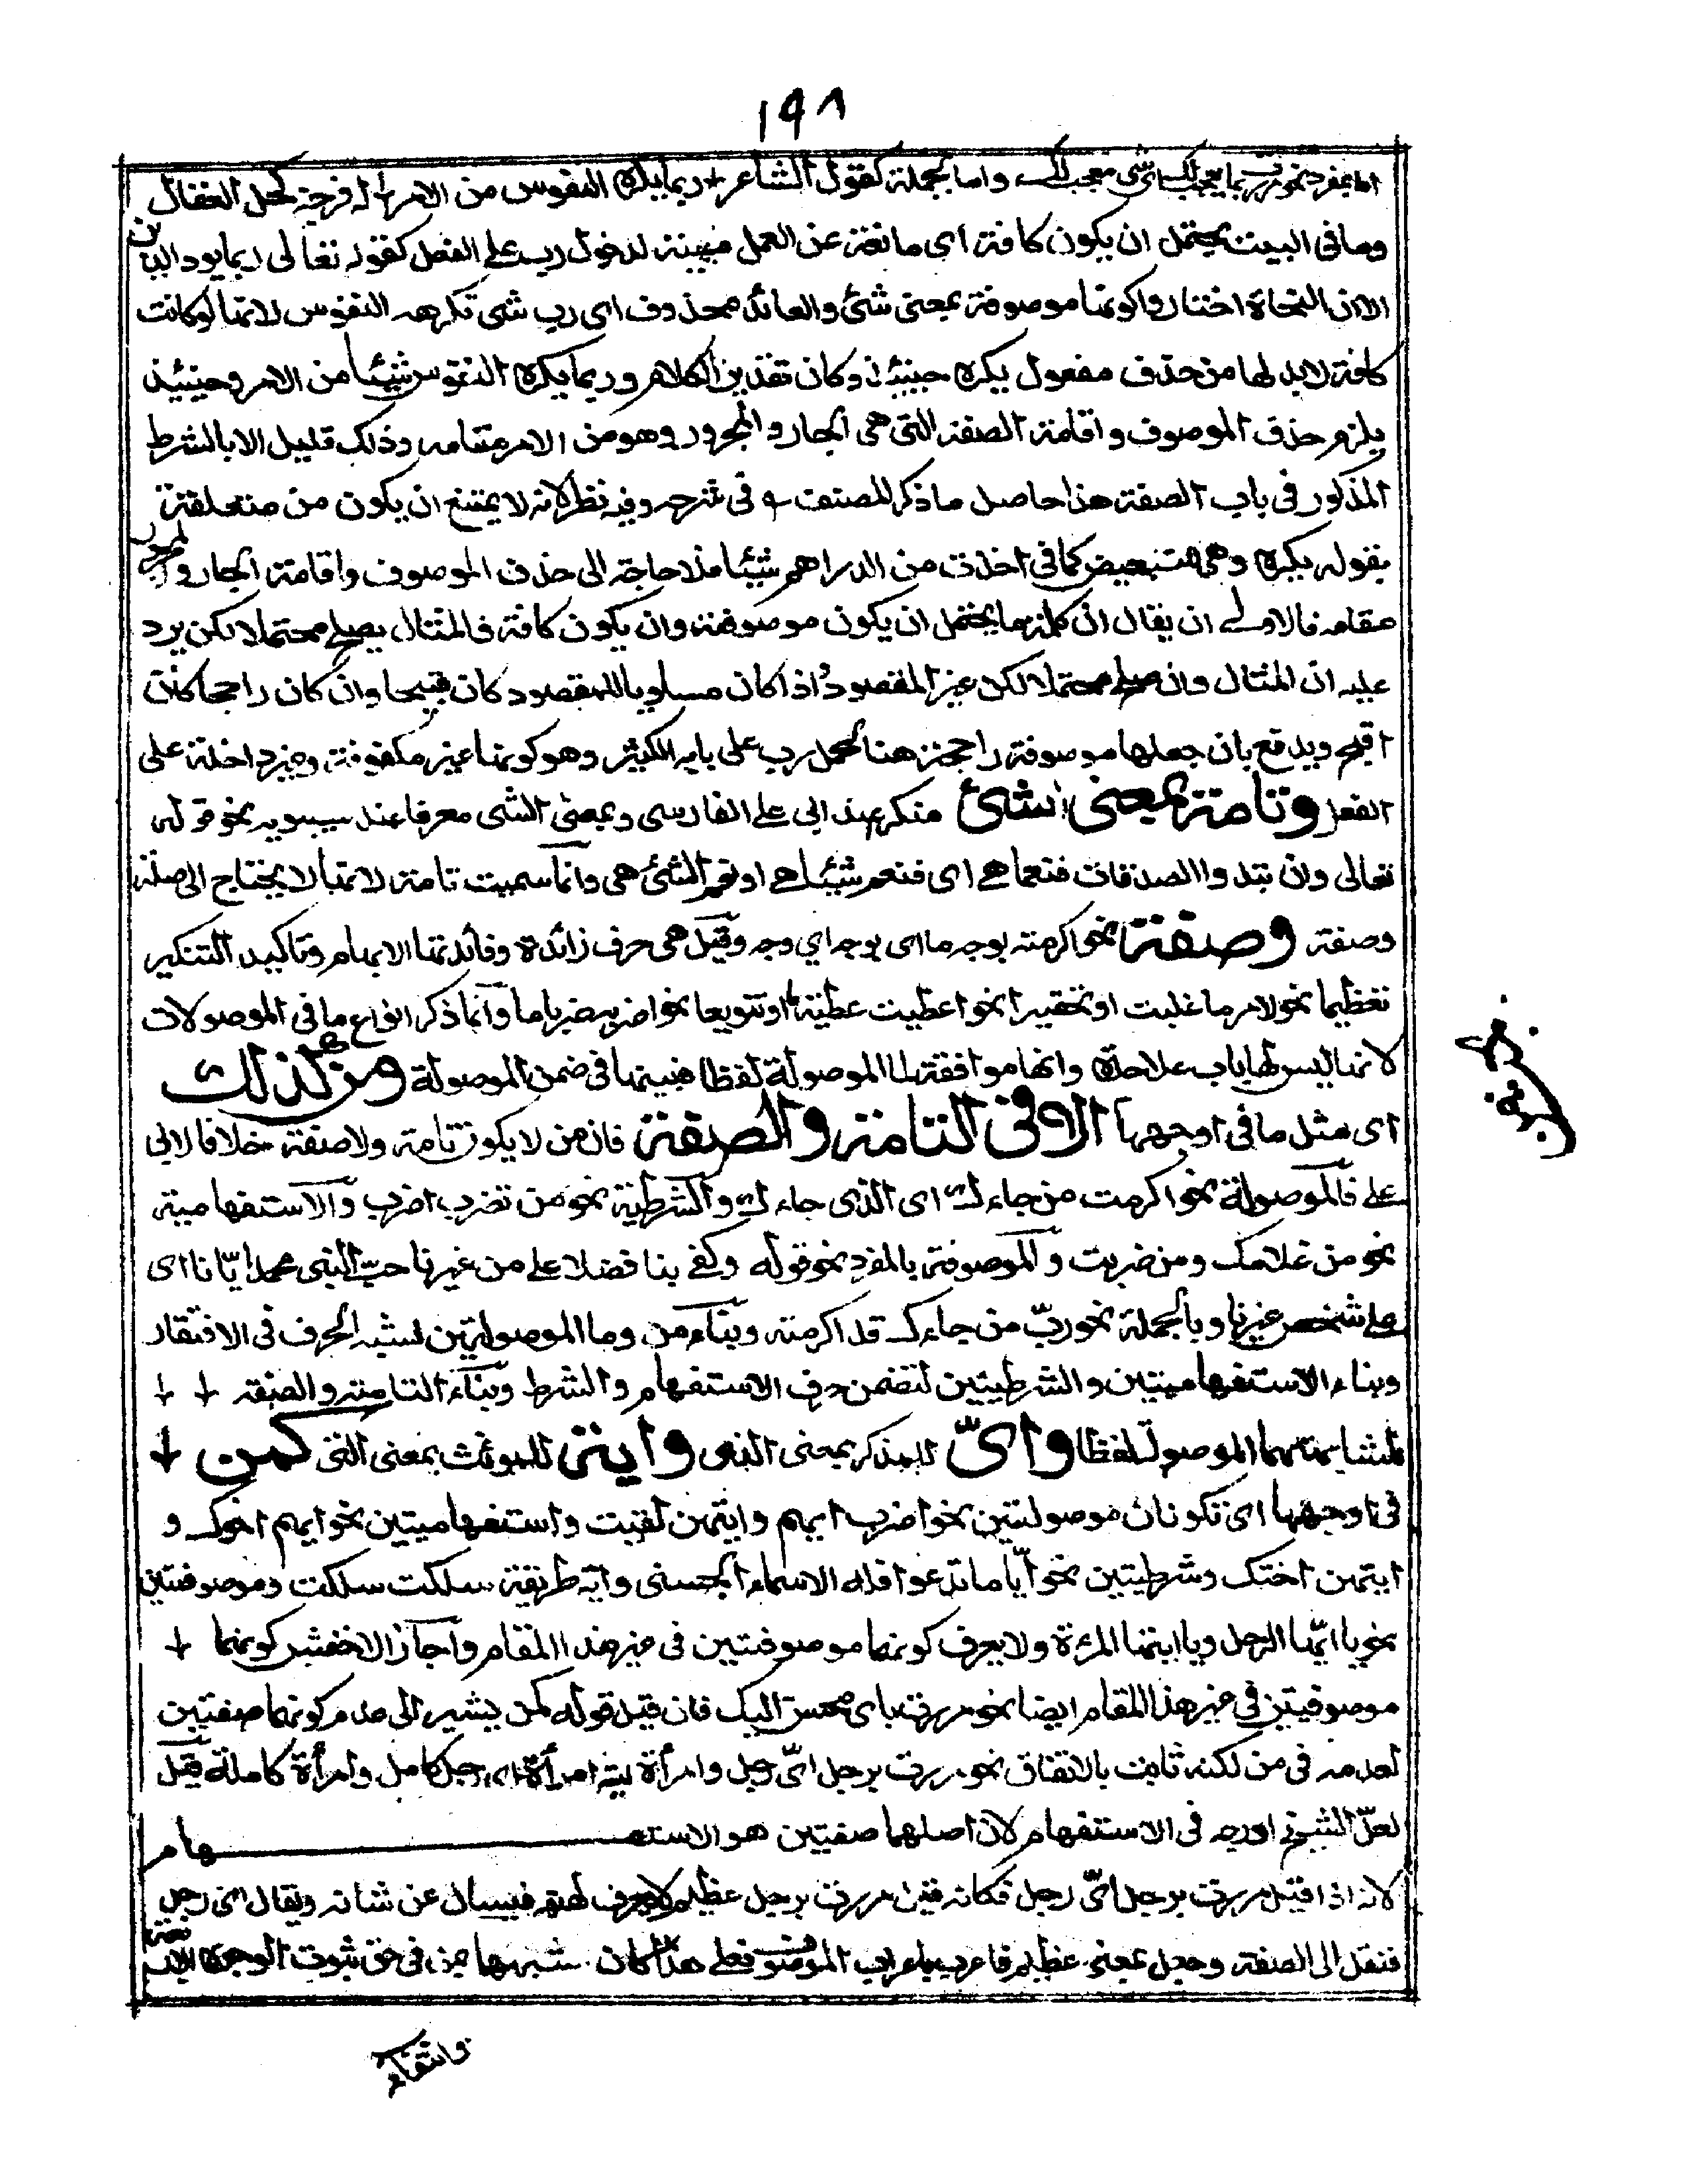 ١٩٨
اما بمفرد نحو مررت بما معجب لك اى شئ معجب لك واما بجملة كقول الشاعر ربما يكره النفوس من الامر له فرجة كحل العقال
وما فى البيت يحتمل ان يكون كافة اى مانعة عن العمل مهيئة لدخول رب على الفعل كقوله تعالى ربما يود الذين
الا ان النحاة اختاروا كونها موصوفة بمعنى شئ والعائد محذوف اى رب شئ تكرهه النفوس لانها لو كانت
كافة لابد لها من حذف مفعول يكره حينئذ وكان تقدير الكلام وربما يكره النفوس شيئا من الامر وحينئذ
يلزم حذف الموصوف واقامة الصفة التى هى الجار والمجرور وهو من الامر مقامه وذلك قليل الا بالشرط
المذكور فى باب الصفة هذا حاصل ما ذكر المصنف فى شرحه وفيه نظر لانه لا يمتنع ان يكون من متعلقة
بقوله يكره وهى للتبعيض كما فى اخذت من الدراهم شيئا فلا حاجة الى حذف الموصوف واقامة الجار والمجرور
مقامه فالاولى ان يقال ان كلمة ما يحتمل ان يكون موصوفة وان يكون كافة فالمثال يصلح محتملا لكن يرد
عليه ان المثال وان صلح محتملا لكن غير المقصود اذا كان مساويا للمقصود كان قبيحا وان كان راجحا كان
اقبح ويدفع بان جعلها موصوفة راجحة هنا لحمل رب على بابه الكثير وهو كونها غير مكفوفة وغير داخلة على
الفعل وتامة بمعنى شئ منكر عند ابى على الفارسى وبمعنى الشى معرفا عند سيبويه نحو قوله
تعالى وان تبدوا الصدقات فنعما هى اى فنعم شيئا هى او نعم الشئ هى وانما سميت تامة لانها لا يحتاج الى صلة
وصفة وصفة نحو اكرمته بوجه ما اى بوجه اى وجه وقيل هى حرف زائدة وفائدتها الابهام وتاكيد التنكير
تعظيما نحو لامر ما غلبت او تحقيرا نحو اعطيت عطية ما او تنويعا نحو اضربه ضربا ما وانما ذكر انواع ما فى الموصولات
لانها ليس لها باب علاحدة وانها موافقة لما الموصولة لفظا فبينها فى ضمن الموصولة ومن كذلك
اى مثل ما فى اوجهها الا فى التامة والصفة فان من لا يكون تامة ولا صفة خلافا لابى
على فالموصولة نحو اكرمت من جاءك اى الذى جاءك والشرطية نحو من تضرب اضرب والاستفهامية
نحو من غلامك ومن ضربت والموصوفة بالمفرد نحو قوله وكفى بنا فضلا على من غيرنا حب النبى محمد ايانا اى
على شخص غيرنا وبالجملة نحو رب من جاءك قد اكرمته وبناء من وما الموصولتين لشبه الحرف فى الافتقار
وبناء الاستفهاميتين والشرطيتين لتضمن حرف الاستفهام والشرط وبناء التامة والصفة
لمشابهتهما الموصولة لفظا واىّ للمذكر بمعنى الذى واية للمؤنث بمعنى التى كمن
فى اوجهها اى تكونان موصولتين نحو اضرب ايهم وايتهن لقيت واستفهاميتين نحو ايهم اخوك و
ايتهن اختك وشرطيتين نحو ايا ما تدعوا فله الاسماء الحسنى واية طريقة سلكت سلكت وموصوفتين
نحو يا ايها الرجل ويا ايتها المرءة ولا يعرف كونهما موصوفتين فى غير هذا المقام واجاز الاخفش كونهما
موصوفتين فى غير هذا المقام ايضا نحو مررت باى محسن اليك فان قيل قوله كمن يشير الى عدم كونهما صفتين
لعدمه فى من لكنه ثابت بالاتفاق نحو مررت برجل اىّ رجل وامرأة اية امرأة اى رجل كامل وامرأة كاملة قيل
لعلّ الشيخ اورجه فى الاستفهام لان اصلهما صفتين هو الاستفهام
لانه اذا قيل مررت برجل اىّ رجل فكانه قيل مررت برجل عظيم لا يعرف فيسال عن شانه ويقال اى رجل
فنقل الى الصفة وجعل بمعنى عظيم فاعرب باعراب الموصوف فعلى هذا كان شبهها بمن فى حق ثبوت الوجوه
وانتفاء